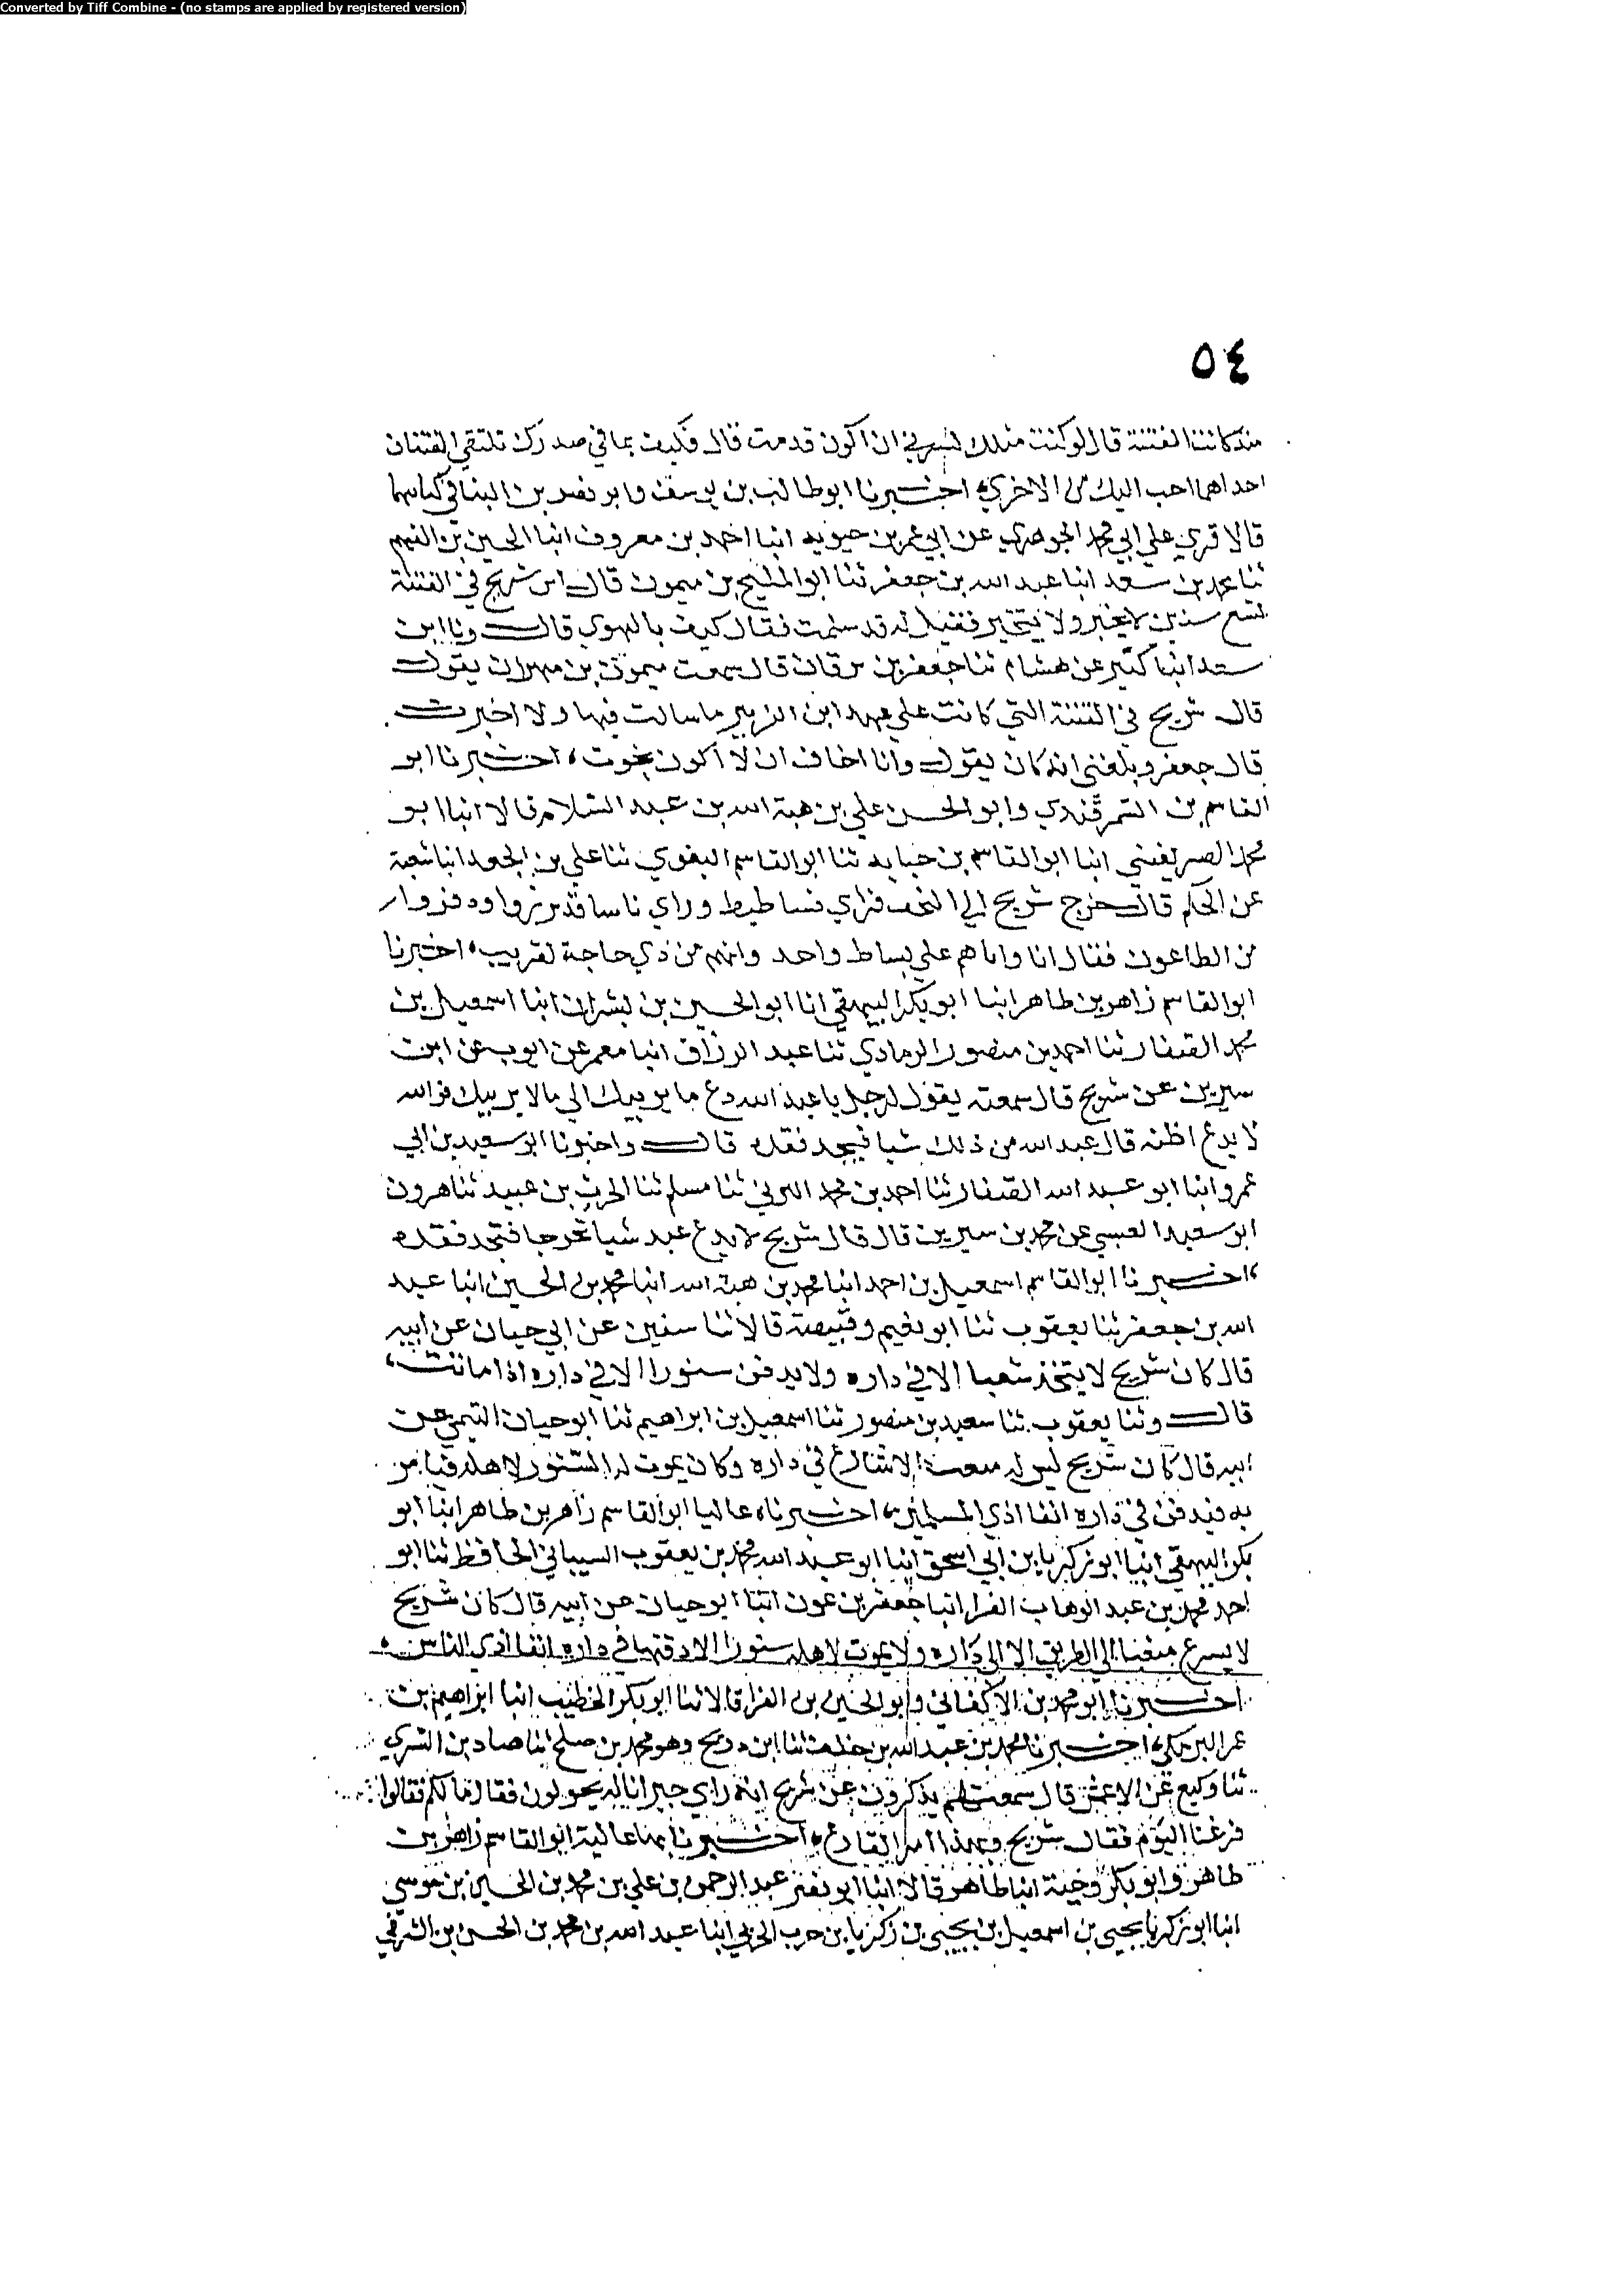 Converted by Tiff Combine - (no stamps are applied by registered version)
٥٤
منذ كانت الفتنة قال لو كنت مثلك لسرني ان اكون قدمت قال فكيف بما في صدرك تلتقي الفتنان
احداهما احب اليك من الاخري، اخبرنا ابو طالب بن يوسف وابو نصر بن البنا في كتابيهما
قالا قري علي ابي محمد الجوهري عن ابي عمر بن حيويه انبا احمد بن معروف انبا الحسين بن الفهم
ثنا محمد بن سعد انبا عبد الله بن جعفر ثنا ابو المليح بن ميمون قال لبث شريح في الفتنة
تسع سنين لا يخبر ولا يتخبر فقيل له قد سلمت فقال كيف بالهوي قال وثنا ابن
سعد انبا كثير عن هشام ثنا جعفر بن برقان قال سمعت ميمون بن مهران يقول
قال شريح في الفتنة التي كانت علي عهد ابن الزبير ما سالت فيها ولا اخبرت
قال جعفر وبلغني انه كان يقول وانا اخاف ان لا اكون نجوت، اخبرنا ابو
القاسم بن السمرقندي وابو الحسن علي بن هبة الله بن عبد السلام قالا انبا ابو
محمد الصريفيني انبا ابو القاسم بن حبابه ثنا ابو القاسم البغوي ثنا علي بن الجعد انبا شعبة
عن الحكم قال خرج شريح الي النجف فراي فساطيط وراي ناسا قد برزوا وفروا
من الطاعون فقال انا واياهم علي بساط واحد وانهم من ذي حاجة لقريب، اخبرنا
ابو القاسم زاهر بن طاهر انبا ابو بكر البيهقي انا ابو الحسين بن بشران انبا اسمعيل بن
محمد الصفار ثنا احمد بن منصور الرمادي ثنا عبد الرزاق انبا معمر عن ايوب عن ابن
سيرين عن شريح قال سمعته يقول لرجل يا عبد الله دع ما يريبك الي مالا يريبك فوالله
لا يدع اظنه قال عبد الله من ذلك شيا فيجد فقده قال واخبرنا ابو سعيد بن ابي
عمرو انبا ابو عبد الله الصفار ثنا احمد بن محمد البرتي ثنا مسلم ثنا الحرث بن عبيد ثنا هرون
ابو سعيد العبسي عن محمد بن سيرين قال قال شريح لا يدع عبد شيا تحرجا فتجد فقده
، اخبرنا ابو القاسم اسمعيل بن احمد انبا محمد بن هبة الله انبا محمد بن الحسين انبا عبد
الله بن جعفر ثنا يعقوب ثنا ابو نعيم وقبيصة قالا ثنا سفين عن ابي حيان عن ابيه
قال كان شريح لا يتخذ شعبا الا في داره ولا يدفن سنورا الا في داره اذا ماتت،
قال وثنا يعقوب ثنا سعيد بن منصور ثنا اسمعيل بن ابراهيم ثنا ابو حيان التيمي عن
ابيه قال كان شريح ليس له مثعب الا شارع في داره وكان يموت له السنور لاهله فيامر
به فيدفن في داره اتقا اذي المسلمين، اخبرناه عاليا ابو القاسم زاهر بن طاهر انبا ابو
بكر البيهقي انبا ابو زكريا بن ابي اسحق انبا ابو عبد الله محمد بن يعقوب السيباني الحافظ ثنا ابو
احمد محمد بن عبد الوهاب الفرا انبا جعفر بن عون انبا ابو حيان عن ابيه قال كان شريح
لا يسرع مثعبا الي الطريق الا الي داره ولا يموت لاهله سنورا الا دفنها في داره اتقا اذي الناس،
اخبرنا ابو محمد بن الاكفاني وابو الحسين بن الفرا قالا ثنا ابو بكر الخطيب انبا ابراهيم بن
عمر البرمكي، اخبرنا محمد بن عبد الله بن خلف ثنا ابن دريح وهو محمد بن صلح انا هناد بن السري
ثنا وكيع عن الاعمش قال سمعتهم يذكرون عن شريح انه راي جيرانا له يجولون فقال ما لكم فقالوا
فرغنا اليوم فقال شريح وبهذا امر الفارغ، اخبرنا بها عالية ابو القاسم زاهر بن
طاهر وابو بكر وجيه ابنا طاهر قالا انبا ابو نصر عبد الرحمن بن علي بن محمد بن الحسين بن موسي
انبا ابو زكريا يحيي بن اسمعيل بن يحيي بن زكريا بن حرب الحربي انبا عبد الله بن محمد بن الحسن بن الشرقي